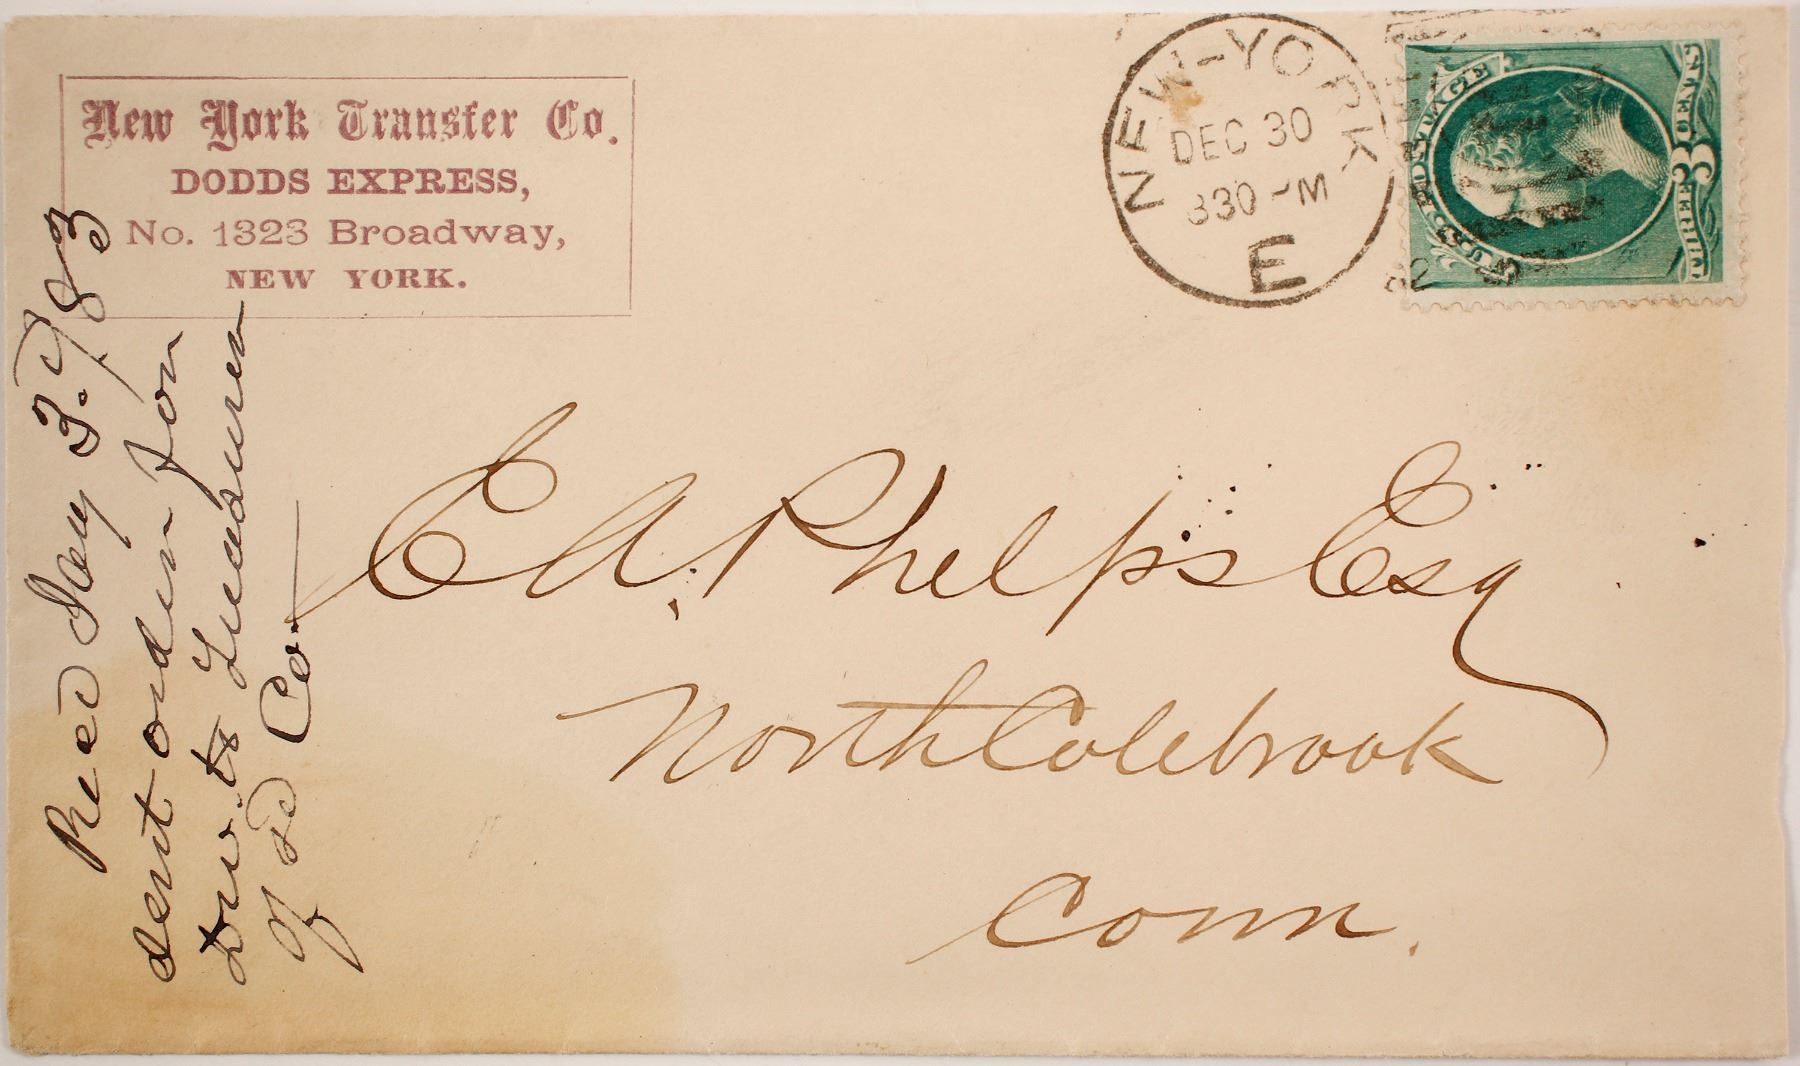 New York Transfer Co.
DODDS EXPRESS,
No. 1323 Broadway,
NEW YORK.
NEW-YORK
DEC 30
330 PM
E
U.S. POSTAGE
THREE 3 CENTS
E A. Phelps Esq
North Colebrook
Conn.
Rec'd Jany 3./83
sent order for
Div. to Treasurer
of sd Co.